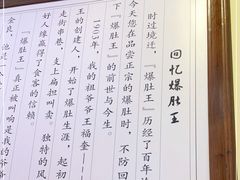 回忆爆肚王
时过境迁,“爆肚王”历经了百年
今天您在品尝正宗的爆肚时,不防回
王”的前世与今生。
1903年,我的祖爷爷王福奎——
王的创建人,开始了爆肚生涯,起初
走街串巷,支上扁担叫卖。独特的风
好人缘赢得了食客的信赖。
“爆肚王”真正被叫响是我的爷爷
金良,他